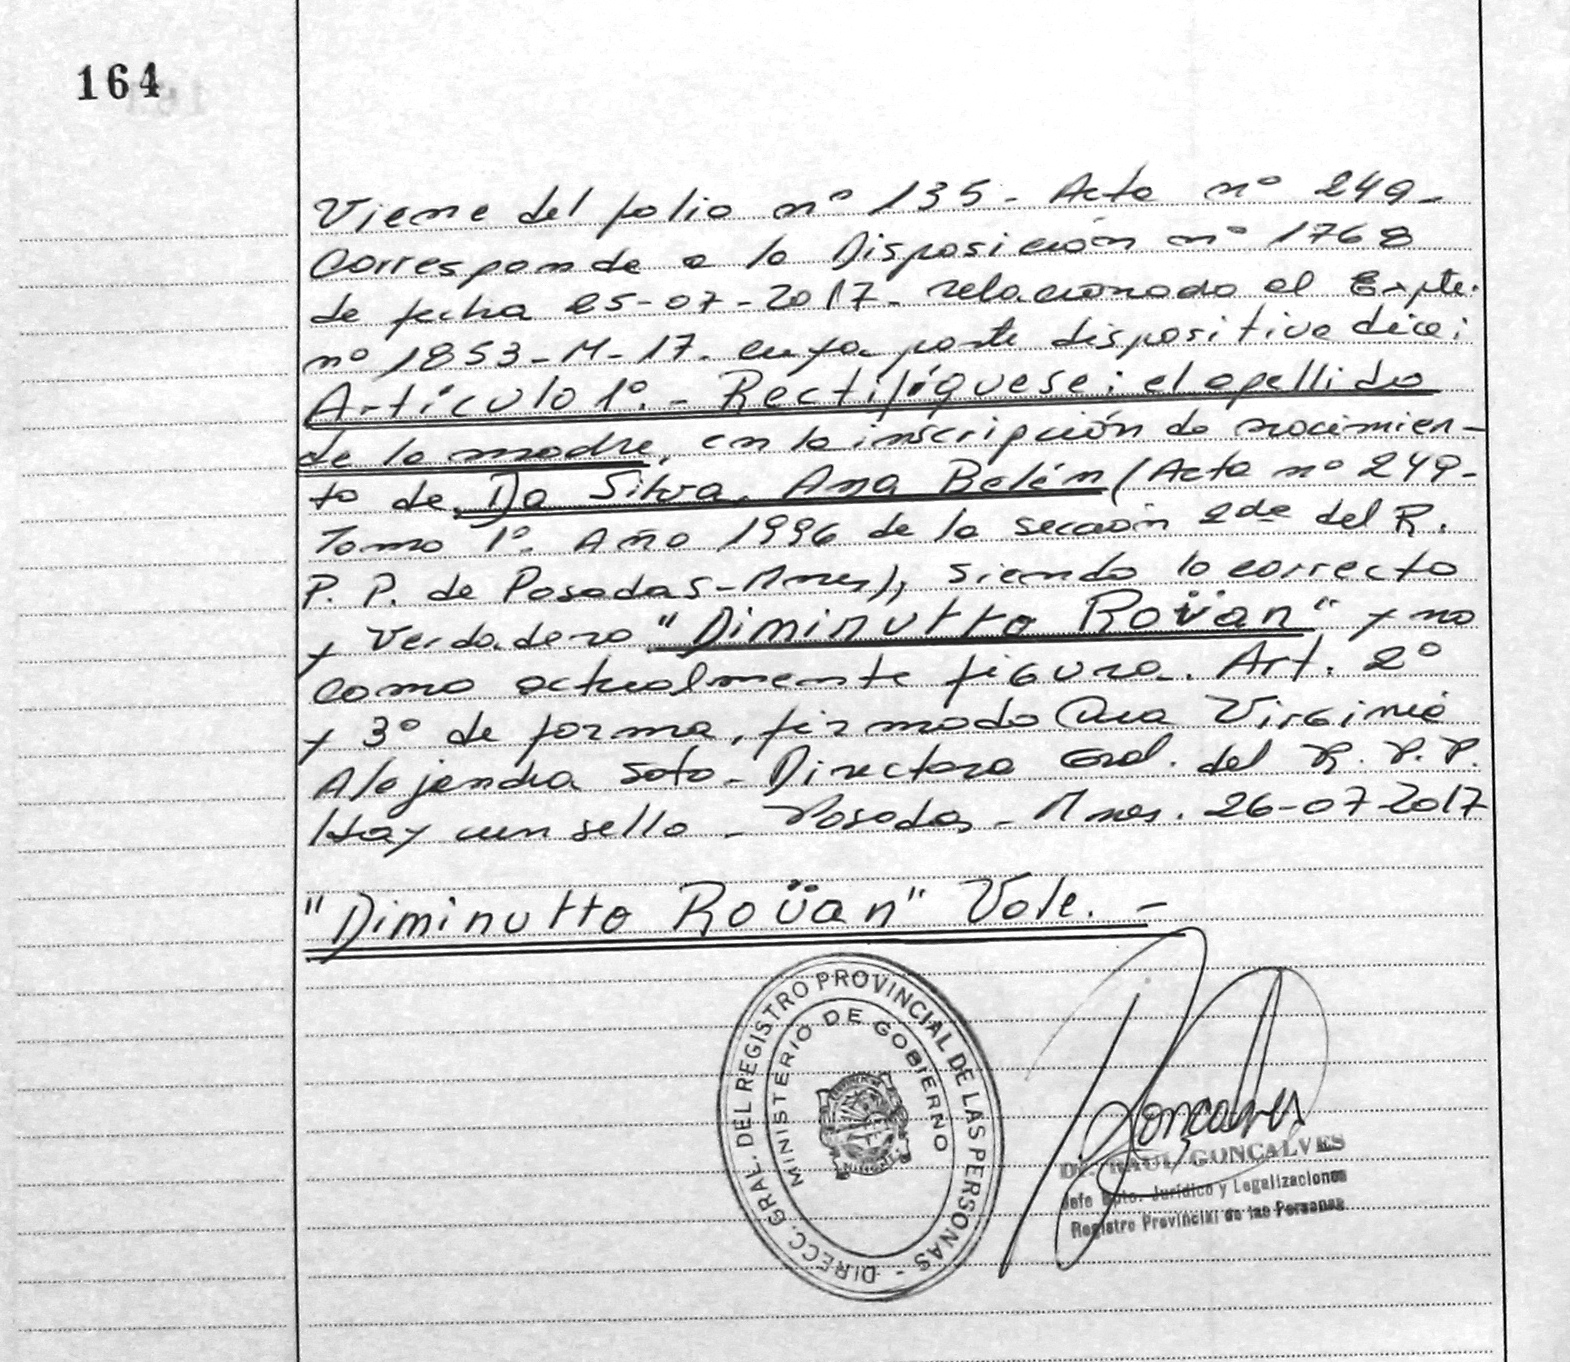 164
Viene del folio nº 135 - Acta nº 249 -
Corresponde a la Disposición nº 1768
de fecha 25-07-2017 - relacionado al Expte.
nº 1853-M-17. cuya parte dispositiva dice:
Artículo 1º. - Rectifíquese: el apellido
de la madre, en la inscripción de nacimien-
to de Da Silva, Ana Belén (Acta nº 249-
Tomo 1º. Año 1996 de la sección 2da del R.
P. P. de Posadas-Mnes), siendo lo correcto
y verdadero "Diminutto Roüan" y no
como actualmente figura. Art. 2º
y 3º de forma, firmado Virginia
Alejandra Soto - Directora Gral. del R. P. P.
Hay un sello - Posadas - Mnes. 26-07-2017
"Diminutto Roüan" Vale. -
DIRECC. GRAL. DEL REGISTRO PROVINCIAL DE LAS PERSONAS -
MINISTERIO DE GOBIERNO
Goncalves
Dr. RAUL GONCALVES
Jefe Dpto. Jurídico y Legalizaciones
Registro Provincial de las Personas